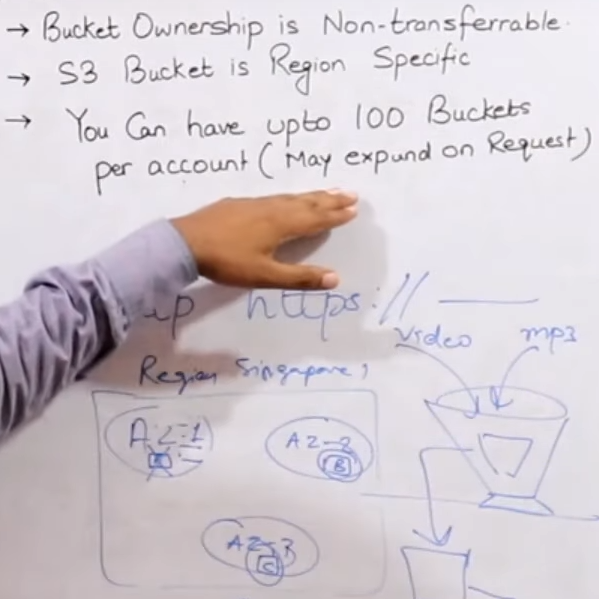 → Bucket Ownership is Non-transferrable.
→ S3 Bucket is Region Specific
→ You Can have upto 100 Buckets
per account (May expand on Request)
https://
video mp3
Region Singapore,
AZ-1
AZ-2
B
AZ-3
C